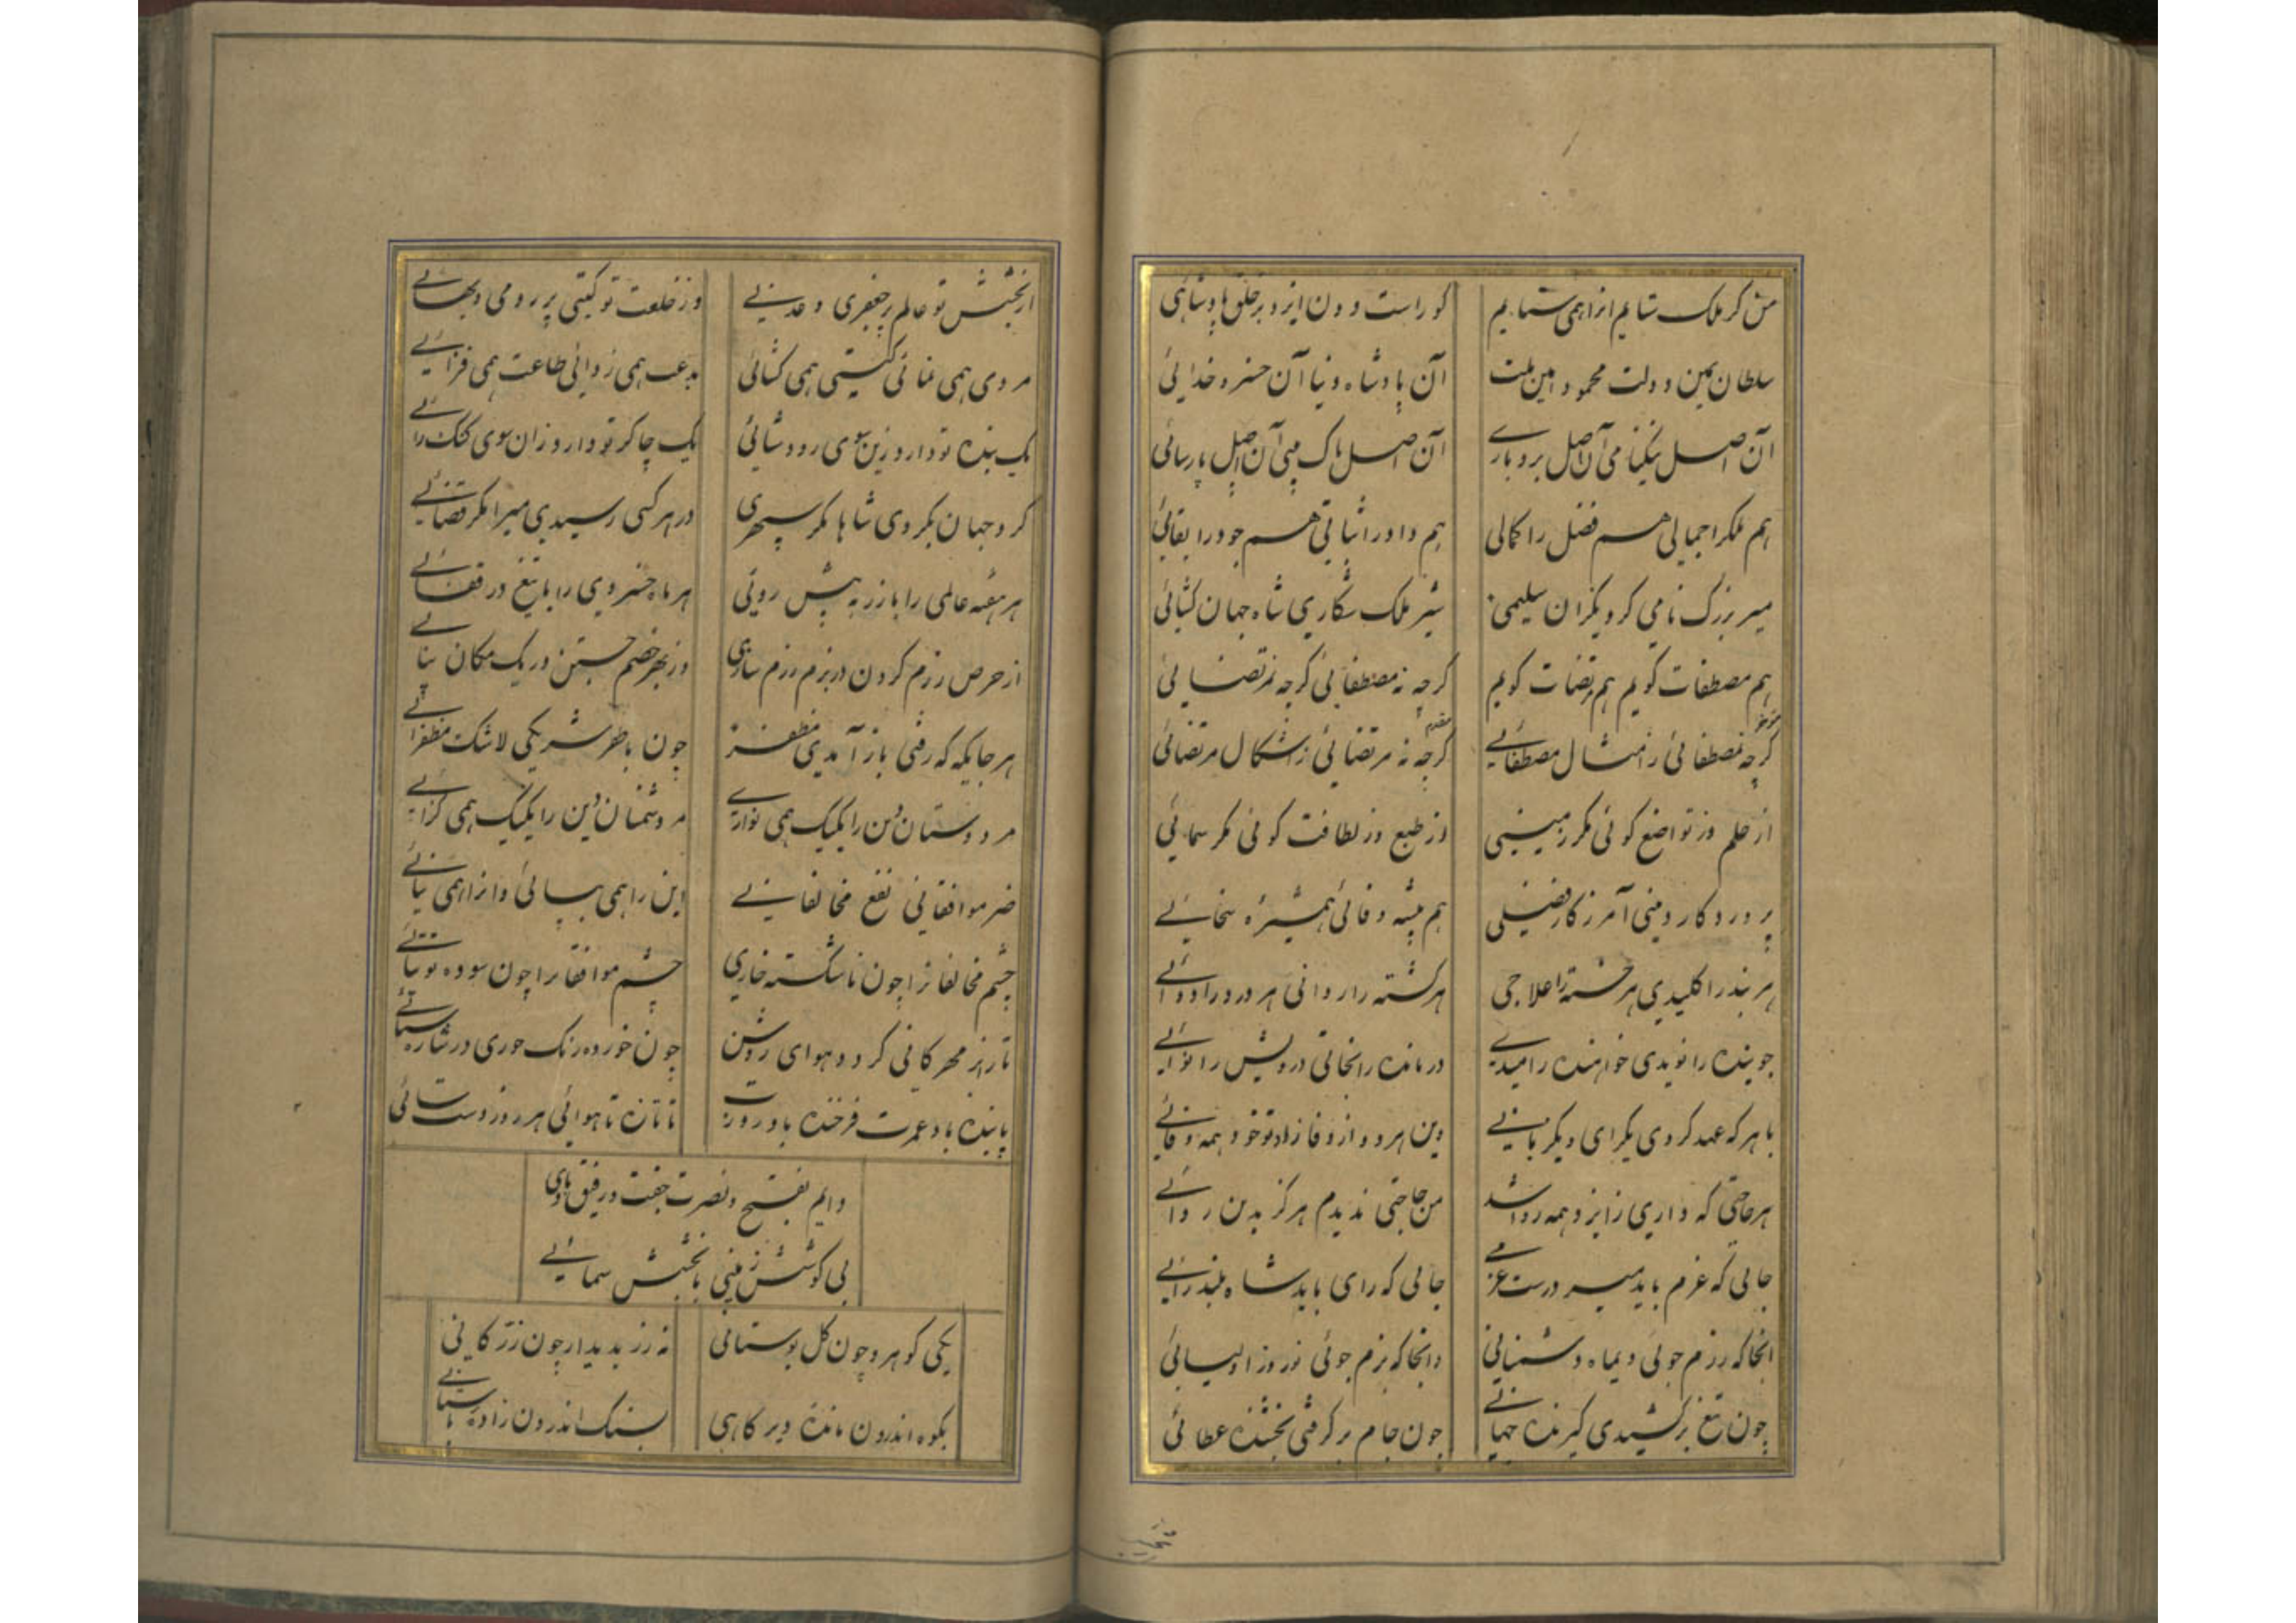 من گر ملک ستایم او را همی ستایم کوراست دون ایزد بر خلق پادشاهی
سلطان یمین دولت محمود امین ملت آن پادشاه دنیا آن خسرو خدائی
آن اصل نیکنامی آن اصل بردباری آن اصل پاک دینی آن اصل پارسائی
هم ملک را جمالی هم فضل را کمالی هم داد را ثباتی هم جود را بقائی
میر بزرگ نامی کرد سلیمی شیر ملک شکاری شاه جهان کشائی
هم مصطفات کویم هم مرتضات کویم کرچه نه مصطفائی کرچه نه مرتضائی
مؤخر مقدم
کرچه نه مصطفائی ز امثال مصطفائی کرچه نه مرتضائی ز اشکال مرتضائی
از حلم وز تواضع کوئی مکر زمینی وز طبع وز لطافت کوئی مکر سمائی
پروردکار دینی آمرزکار فضلی هم پیشه وفائی همشیره سخائی
هر بند را کلیدی هر خسته را علاجی هر کشته را روانی هر درد را دوائی
جوینده را نویدی خواهنده را امیدی درمانده را نجاتی درویش را نوائی
با هر که عهد کردی یکرای دیکر بائی وین هر دو از وفا زاد تو خود همه وفائی
هر حاجتی که داری ز ایزد همه روا شد من حاجتی ندیدم هرکز بدین روائی
جائی که عزم باید میر درست عزمی جائی که رای باید شاه بلند رائی
انجا که رزم جوئی دیماه دشمنانی وانجا که بزم جوئی نوروز اولیائی
چون تیغ برکشیدی کیرنده جهانی چون جام برکرفتی بخشنده عطائی
از بخشش تو عالم پر جعفری و عدنی وز خلعت تو کیتی پر رومی و بهائی
مردی همی نمائی کیتی همی کشائی بدعت همی زدائی طاعت همی فزائی
یک بنده تو دارد زین سوی رود شائی یک چاکر تو دارد زان سوی کنک رائی
کرد جهان بکردی شاها مکر سپهری در هر کسی رسیدی میرا مکر قضائی
هر هفته عالمی را با زر به پیش روئی هر ماه خسروی را با تیغ در قفائی
از حرص رزم کردن در بزم رزم سازی وز بهر خصم جستن در یک مکان نپائی
هر جایکه که رفتی باز آمدی مظفر چون با ظفر شریکی لاشک مظفر آئی
مر دوستان دین را یکیک همی نوازی مر دشمنان دین را یکیک همی کزائی
ضر موافقانی نفع مخالفانی این را همی ببائی وانرا همی نیائی
چشم مخالفانرا چون ناشکسته خاری چشم موافقانرا چون سوده توتیائی
تا روز مهرکانی کردد هوای روشن چون خورده رنک حوری در شاره ستائی
پاینده باد عمرت فرخنده باد روزت تا تازه تا هوائی هر روز دستائی
دایم بفتح و نصرت جفت و رفیق بادی
بی کوشش زمینی با بخشش سمائی
یکی کوهر و چون کل بوستانی نه زر بدیدار چون زر کانی
بکوه اندرون مانده دیرکاهی بسنک اندرون زاده باستانی